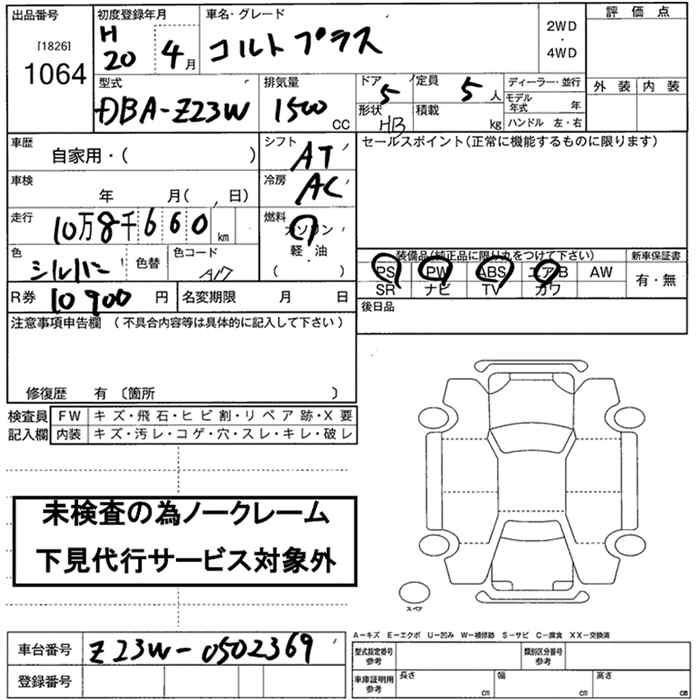 出品番号 初度登録年月 車名・グレード 2WD・4WD 評価点
[1826]
1064
H 20 4月 コルトプラス
外装 内装
型式 排気量 ドア 5 定員 5人 ディーラー・並行
DBA-Z23W 1500 CC 形状 HB 積載 kg モデル年式 年
ハンドル 左・右
車歴 自家用・( ) シフト AT セールスポイント(正常に機能するものに限ります)
車検 年 月( 、日) 冷房 AC
走行 10万8千660km 燃料 ガソリン
軽・油
( )
色 シルバー 色替 色コード A17
装備品(純正品に限り丸をつけて下さい) 新車保証書
PS PW ABS エアB AW 有・無
SR ナビ TV カワ
R券 10900円 名変期限 月 日 後日品
注意事項申告欄 (不具合内容等は具体的に記入して下さい)
修復歴 有 〔箇所 〕
検査員 FW キズ・飛石・ヒビ割・リペア跡・X要
記入欄 内装 キズ・汚レ・コゲ・穴・スレ・キレ・破レ
未検査の為ノークレーム
下見代行サービス対象外
スペア
A-キズ E-エクボ U-凹み W-補修跡 S-サビ C-腐食 XX-交換済
車台番号 Z23W-0502369 型式指定番号 参考 類別区分番号 参考
登録番号 車庫証明用 参考 長さ cm 幅 cm 高さ cm